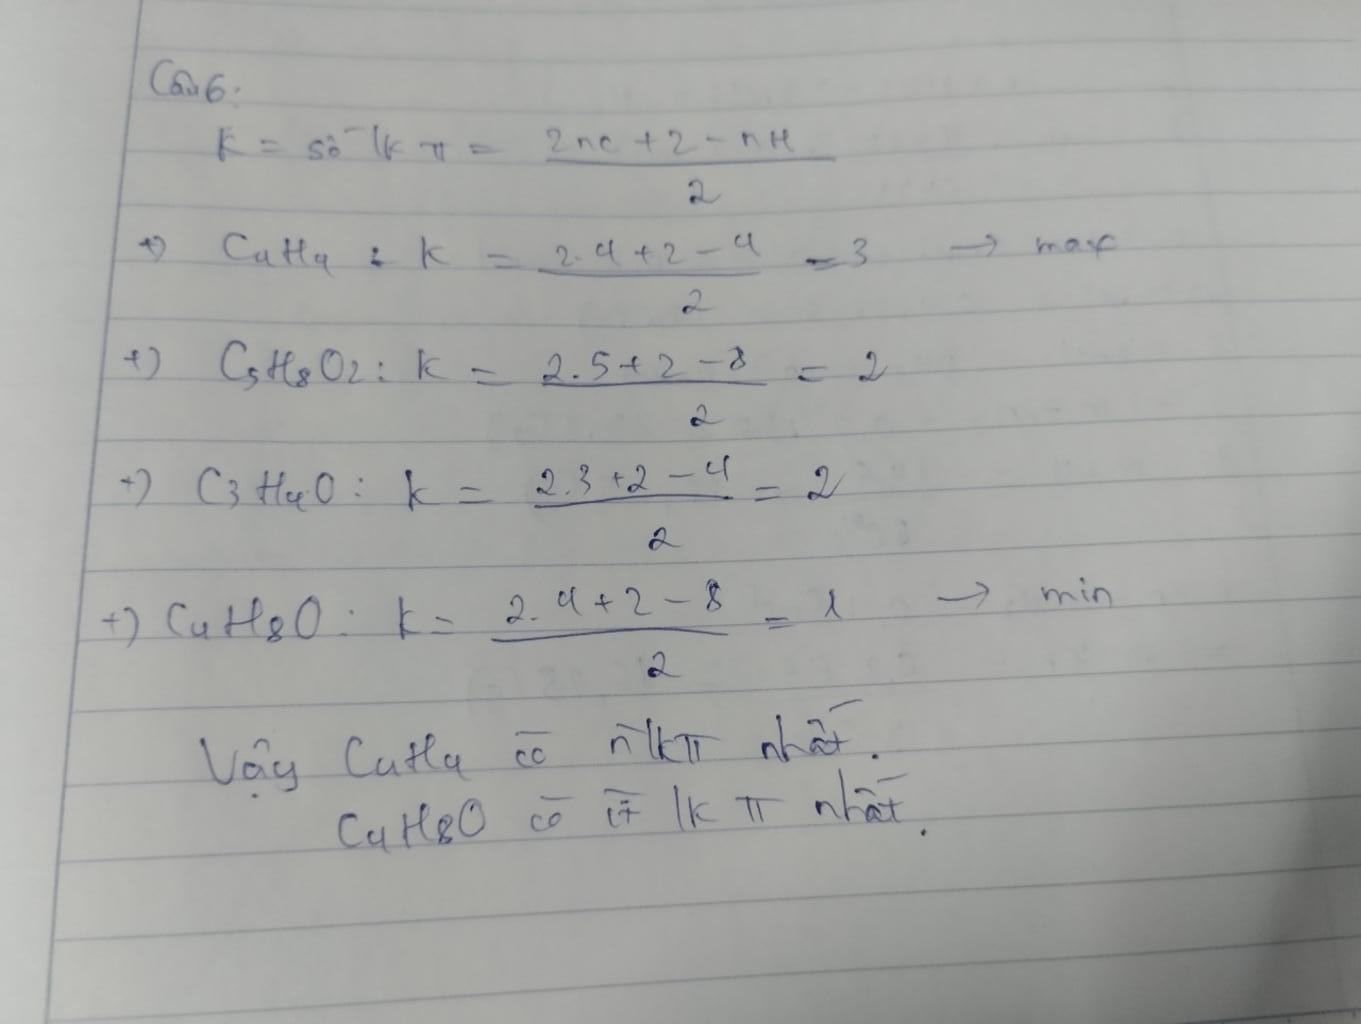 Câu 6:
K = số lk π = (2nc + 2 - nH)/2
+) C4H4 : K = (2.4 + 2 - 4)/2 = 3 → max
+) C5H8O2 : K = (2.5 + 2 - 8)/2 = 2
+) C3H4O : K = (2.3 + 2 - 4)/2 = 2
+) C4H8O : K = (2.4 + 2 - 8)/2 = 1 → min
Vậy C4H4 có ñ lk π nhất.
C4H8O có ít lk π nhất.